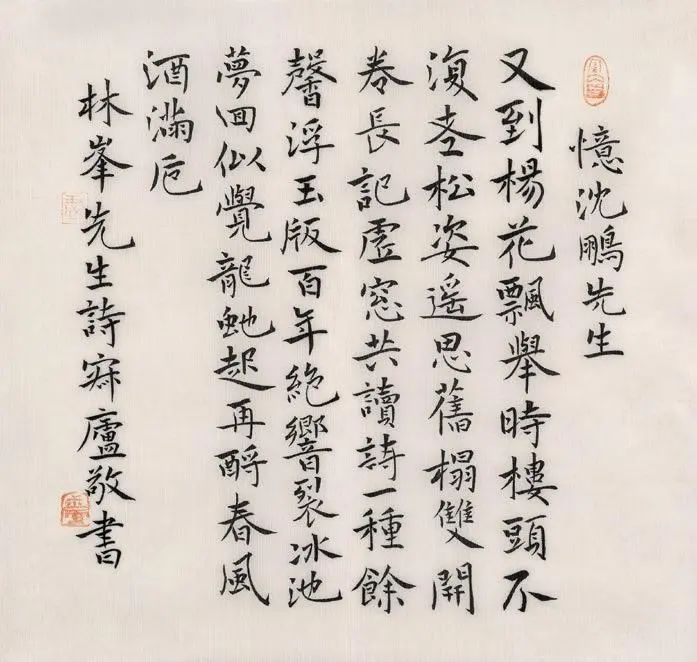 憶沈鵬先生
又到楊花飄舉時樓頭不
復奎松姿遥思舊榻雙開
卷長記虛窓共讀詩一種餘
馨浮玉版百年絶響裂冰池
夢回似覺龍虵起再酹春風
酒滿卮
林峯先生詩寐廬敬書